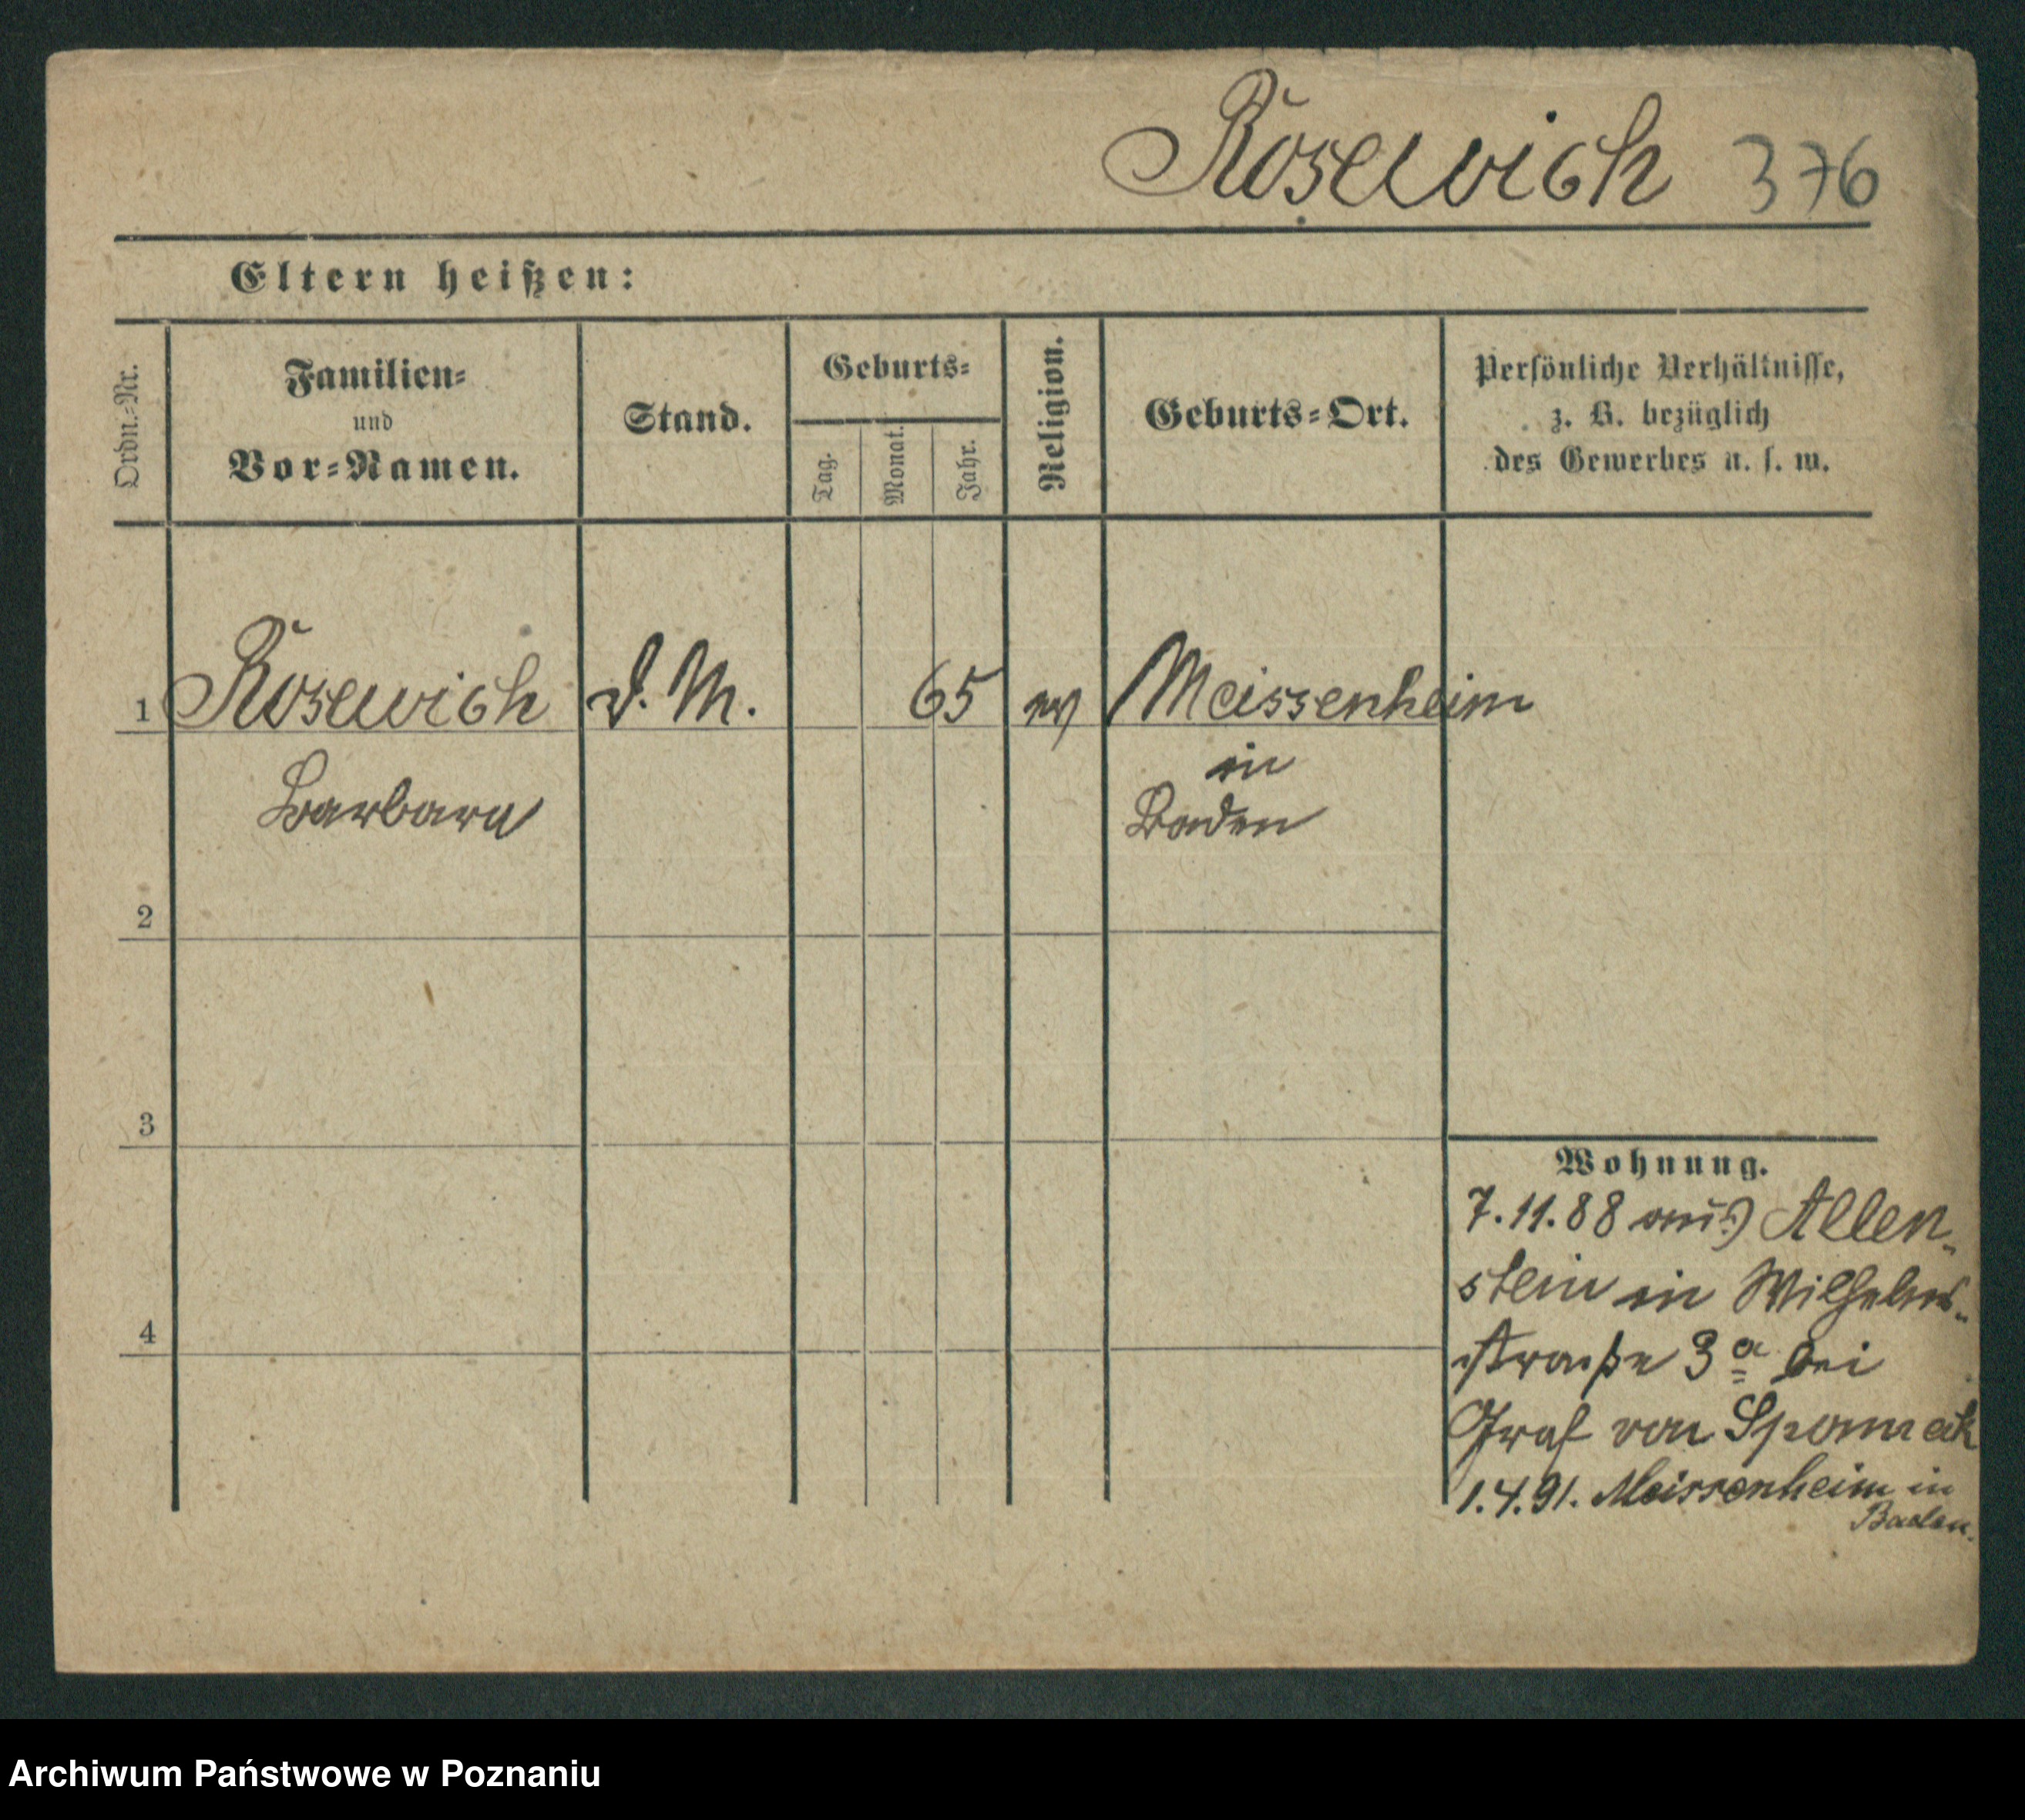 Rosewich 376
Eltern heißen:
Ordn.-Nr.
Familien-
und
Vor-Namen.
Stand.
Geburts-
Tag.
Monat.
Jahr.
Religion.
Geburts-Ort.
Persönliche Verhältnisse,
z. B. bezüglich
des Gewerbes u. s. w.
1 Rosewich D. M. 65 ev Meissenheim
Barbara
in
Baden
2
3
4
Wohnung.
7.11.88 aus Allen-
stein in Wilhelm-
straße 3a bei
Graf von Sponneck
1.4.91. Meissenheim in
Baden.
Archiwum Państwowe w Poznaniu